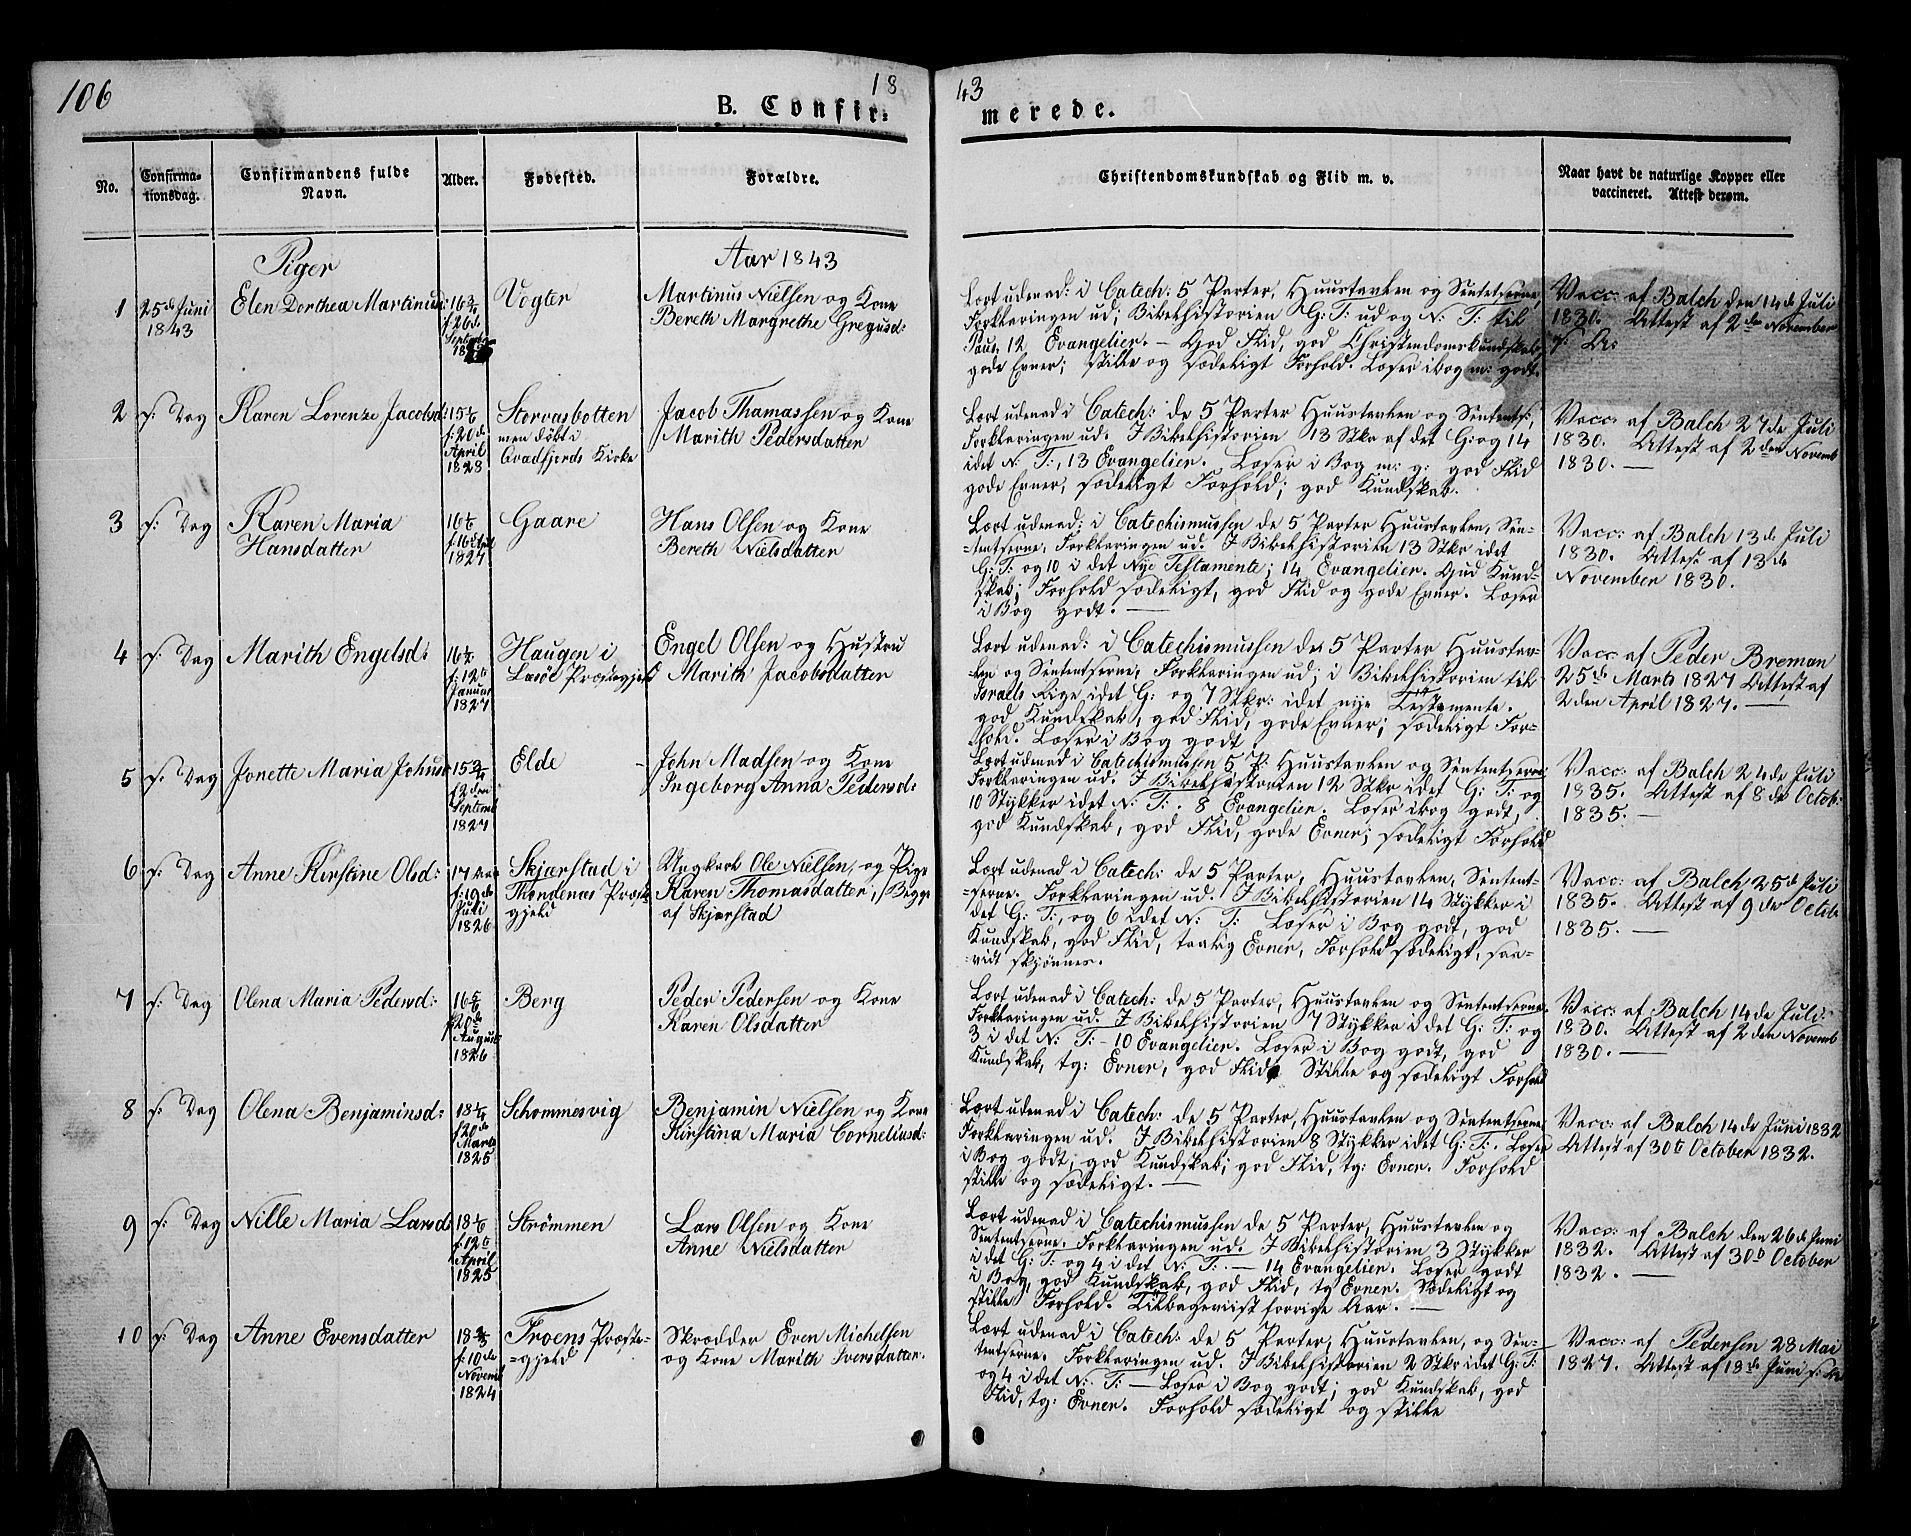 106
18
43
B. Confir-
merede.
No.
Confirma-
tionsdag.
Confirmandens fulde
Navn.
Alder.
Fødested.
Forældre.
Christendomskundskab og Flid m. v.
Naar havt de naturlige Kopper eller
vaccineret. Attest derom.
Piger
Aar 1843
1
25de Juni
1843
Elen Dorthea Martinusd:
16 3/4
f: 26de
Septembr
Vogter
Martinus Nielsen og Kone
Bereth Margrethe Gregusd:
Lært udenad: i Catech: 5 Parter, Huustavlen og Sentetserne,
Forklaringen ud; Bibelhistorien G: T: ud og N: T: til
Paul, 12 Evangelier. – God Flid, god Christendomskundskab,
gode Evner; stille og sædeligt Forhold. Læser i bog m: godt.
Vacc: af Balch den 14de Juli
1830. Attest af 2den November
s: A:
2
s: Dag
Karen Lorenze Jacobsd:
15 1/6
f: 20de
April
1828
Storvasbotten
men døbt i
Qvædfjords Kirke
Jacob Thomassen og Kone
Marith Pedersdatter
Lært udenad i Catech: de 5 Parter Huustavlen og Sentents:,
Forklaringen ud. I Bibelhistorien 13 Stkr af det G: og 14
i det N: T:, 13 Evangelier. Læser i Bog m: g: god Flid
gode Evner, sædeligt Forhold; god Kundskab.
Vacc: af Balch 27de Juli
1830. Attest af 2den Novemb
1830. —
3
s: Dag
Karen Maria
Hansdatter
16 1/6
1827
Gaare
Hans Olsen og Kone
Bereth Nielsdatter
Lært udenad: i Catechismussen de 5 Parter Huustavlen, Sen-
-tentserne, Forklaringen ud. I Bibelhistorien 13 Stkr i det
G: T: og 10 i det Nye Testamente; 14 Evangelier. God Kund-
skab; Forhold sædeligt, god Flid og gode Evner. Læser
i Bog godt. —
Vacc: af Balch 13de Juli
1830. Attest af 13de
November 1830.
4
s: Dag
Marith Engelsd:
16 1/2
f: 12te
Januar
1827
Haugen i
Engel Olsen og Hustru
Marith Jacobsdatter
Lært udenad: i Catechismussen de 5 Parter Huustav-
len og Sententserne, Forklaringen ud; i Bibelhistorien til
Israels Rige i det G: og 7 Stkr: i det nye Testamente.
god Kundskab, god Flid, gode Evner; sædeligt For-
hold. Læser i Bog godt
Vacc af Peder Breman
25de Marts 1827 Attest af
2den April 1827. —
5
s: Dag
Jonette Maria Johnsd
15 3/4
f 2den
Septemb
1827
Elde
John Madsen og Kone
Ingeborg Anna Pedersd:
Lært udenad i Catechismusen 5 P: Huustavlen og Sententserne
Forklaringen ud. I Bibelhistorien 12 Stkr i det G: T: og
10 Stykker i det N: T: . 8 Evangelier. Læser i bog godt,
god Kundskab, god Flid, gode Evner; sædeligt Forhold
Vacc: af Balch 24de Juli
1835. Attest af 8de Octob:
1835. —
6
s: Dag
Anne Kirstine Olsd:
17
f: 19de
Juli
1826
Skjærstad i
Throndenæs Præste
gjeld
Ungkarl Ole Nielsen, og Pige
Karen Thomasdatter, Begge
af Skjærstad
Lært udenad i Catech: de 5 Parter, Huustavlen, Sentent-
-serne. Forklaringen ud. I Bibelhistorien 14 Stykker i
det G: T:, og 6 i det N: T: Læser i Bog godt, god
Kundskab, god Flid, taalig Evner, Forhold sædeligt, saa-
-vidt skjønnes.
Vacc: af Balch 25de Juli
1835. Attest af 9de Octob
1835. —
7
s: Dag
Olena Maria Pedersd:
16 5/6
f 20de
August
1826
Berg
Peder Pedersen og Kone
Karen Olsdatter
Lært udenad i Catech: de 5 Parter, Huustavlen og Sententserne.
Forklaringen ud. I Bibelhistorien 7 Stykker i det G: T: og
3 i det N: T: – 10 Evangelier. Læser i Bog godt, god
Kundskab, tg: Evner, god Flid, Stille og sædeligt Forhold
Vacc: af Balch 14de Juli
1830. Attest af 2den Novemb
1830. —
8
s: Dag
Olena Benjaminsd:
18 1/4
f 20de
Marts
1825
Schommesvig
Benjamin Nielsen og Kone
Kirstina Maria Corneliusd:
Lært udenad i Catech: de 5 Parter, Huustavlen og Sententserne
Forklaringen ud. I Bibelhistorien 8 Stykker i det G: T:. Læser
i Bog godt; god Kundskab; god Flid, tg: Evner. Forhold
stille og sædeligt. —
Vacc: af Balch 14de Juni 1832
Attest af 30te October 1832.
9
s: Dag
Nille Maria Larsd
18 1/6
f. 12te
April
1825
Strømmen
Lars Olsen og Kone
Anne Nielsdatter
Lært udenad i Catechismussen de 5 Parter, Huustavlen og
Sententserne. Forklaringen ud. I Bibelhistorien 3 Stykker
i det G: T: og 4 i det N: T: . — 14 Evangelier. Læser godt
i Bog, god Kundskab, god Flid, tg Evner. Sædeligt og
stille Forhold. Tilbageviist forrige Aar. —
Vacc: af Balch den 26de Juni
1832. Attest af 30te October
1832. —
10
s: Dag
Anne Evensdatter
f: 10de
Novemb
1824
Froens Præste-
-gjeld
Skrædder Even Michelsen
og Kone Marith Iversdatter.
Lært udenad i Catech: de 5 Parter, Huustavlen, og Sen-
tentserne. Forklaringen ud. I Bibelhistorien 2 Stkr i det G: T:
og 4 i det N: T: — Læser i Bog godt; god Kundskab, god
Flid, tg: Evner. Forhold sædeligt og stille
Vacc: af Pedersen 28 Mai
1827. Attest af 18de Juni s: A